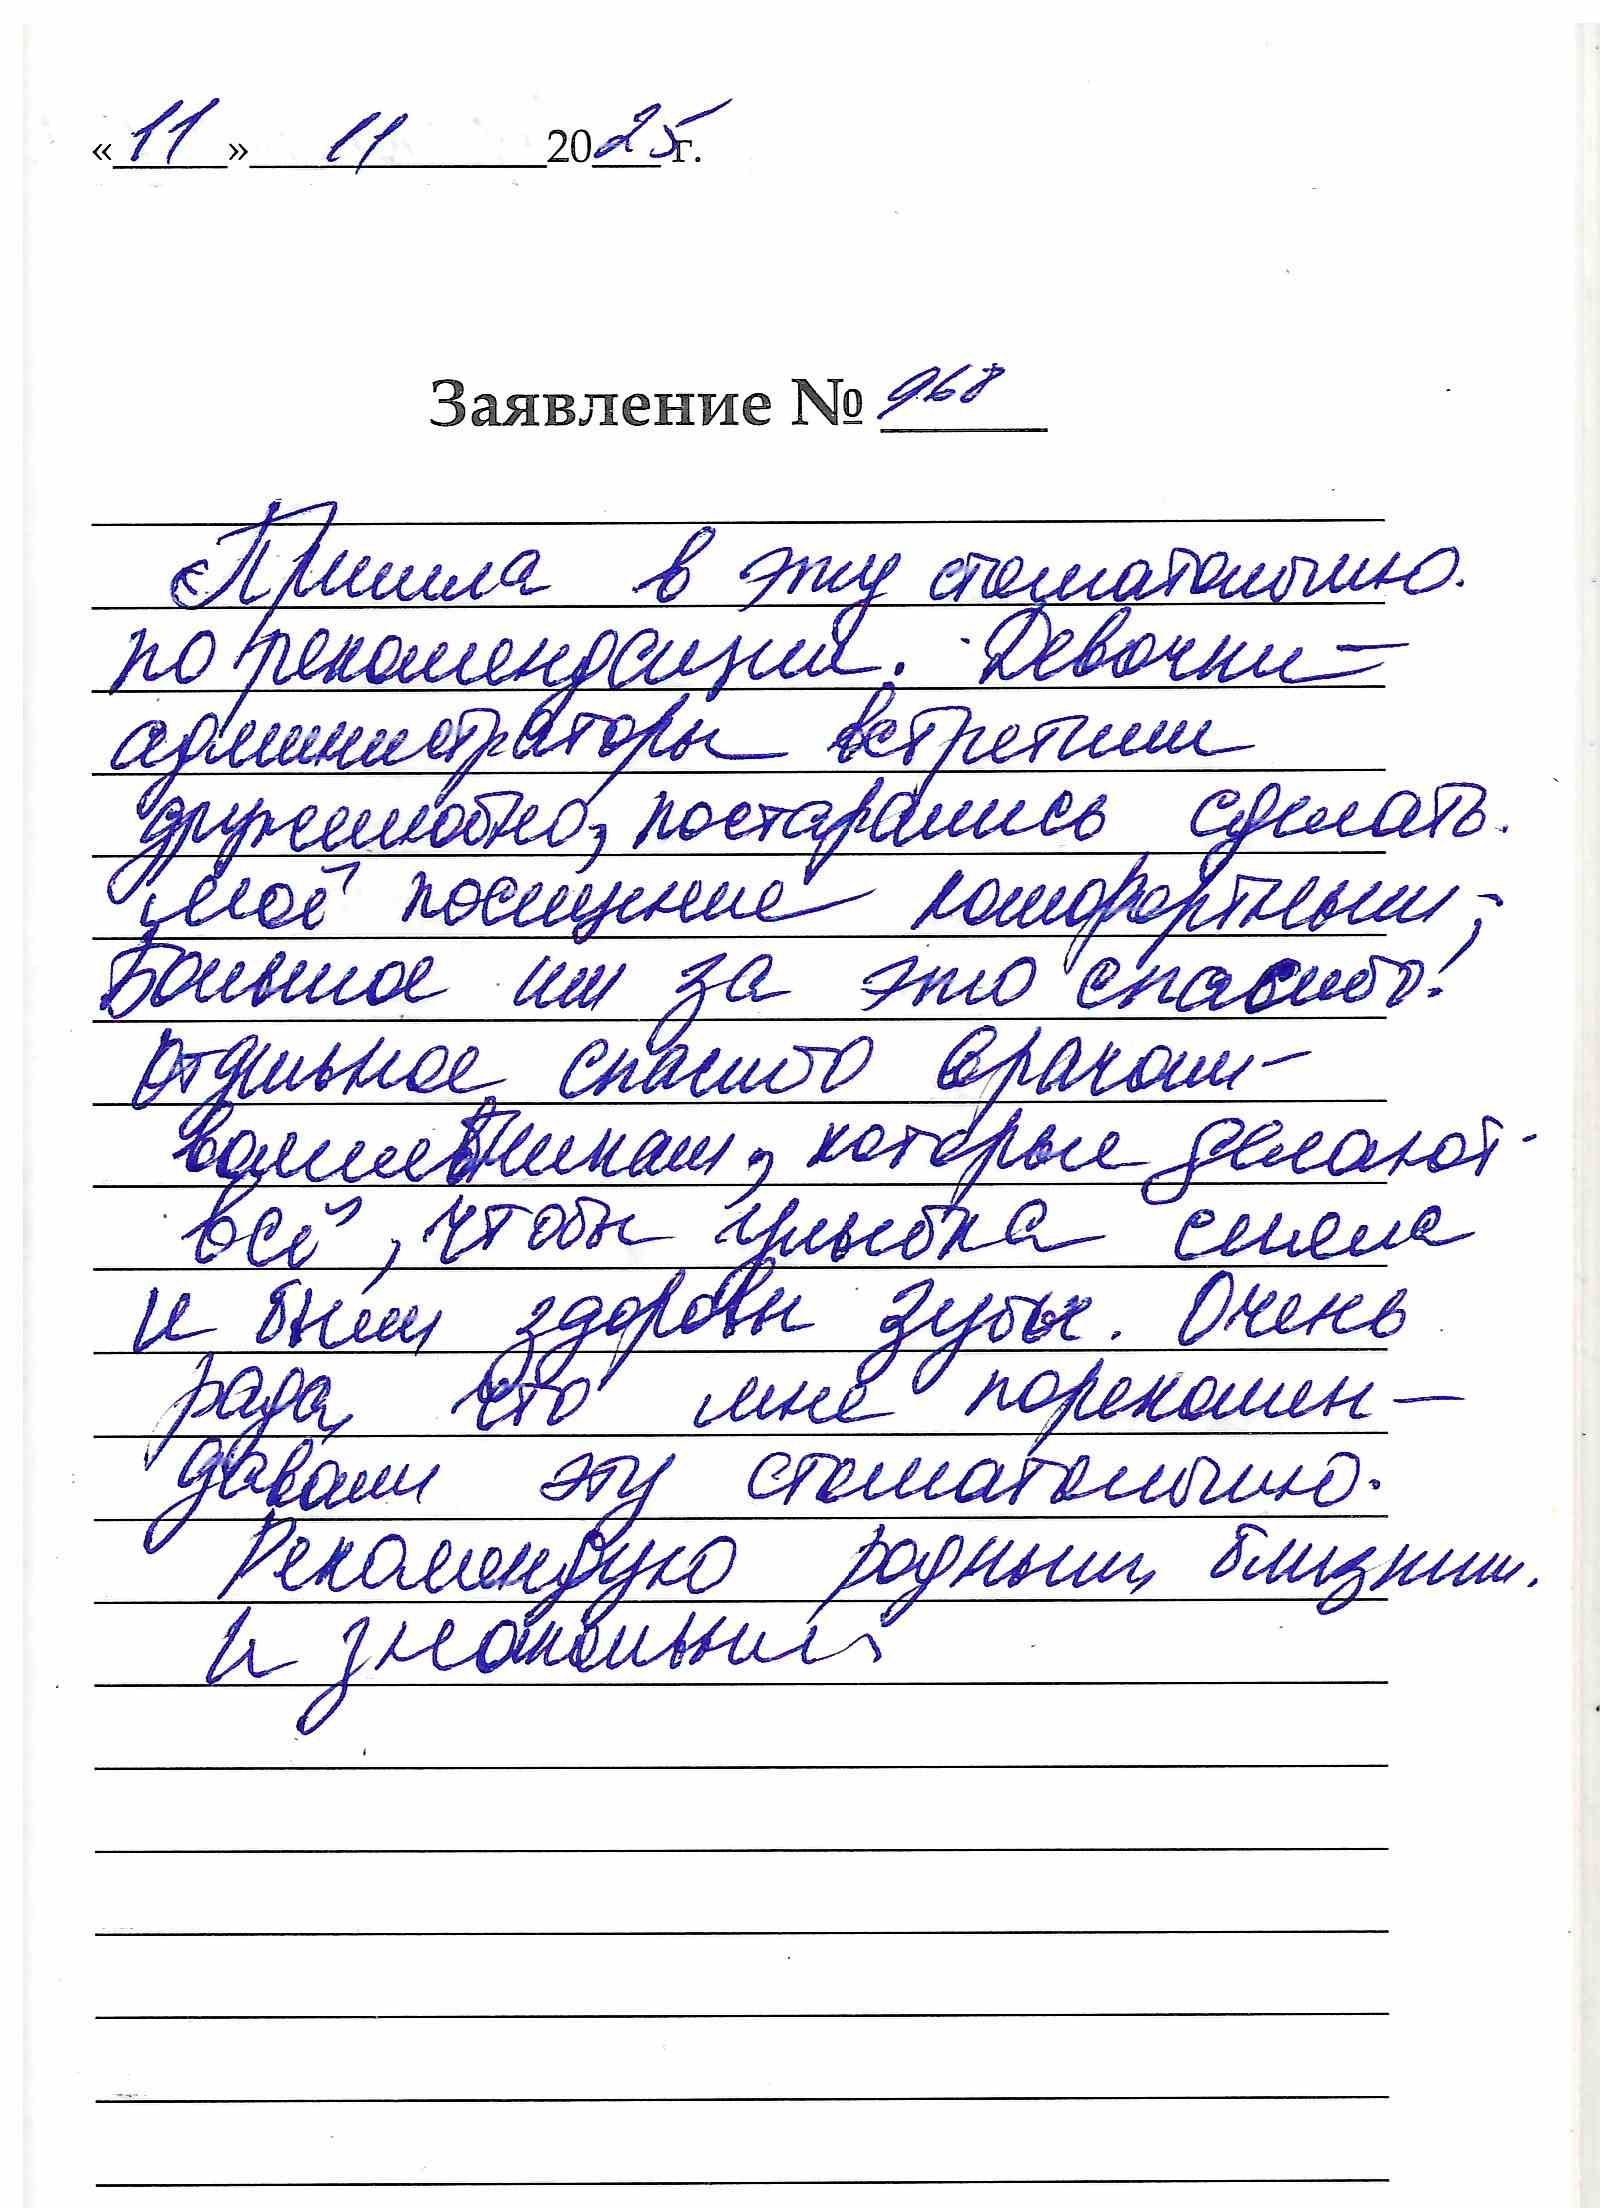 «11» 11 2025 г.
Заявление № 968
Пришла в эту стоматологию
по рекомендации. Девочки –
администраторы встретили
дружелюбно, постарались сделать
моё посещение комфортным,
Большое им за это спасибо!
Отдельное спасибо врачам –
волшебникам, которые делают
всё, чтобы улыбка сияла
и были здоровы зубы. Очень
рада, что мне порекомен –
довали эту стоматологию.
Рекомендую родным, близким
и знакомым